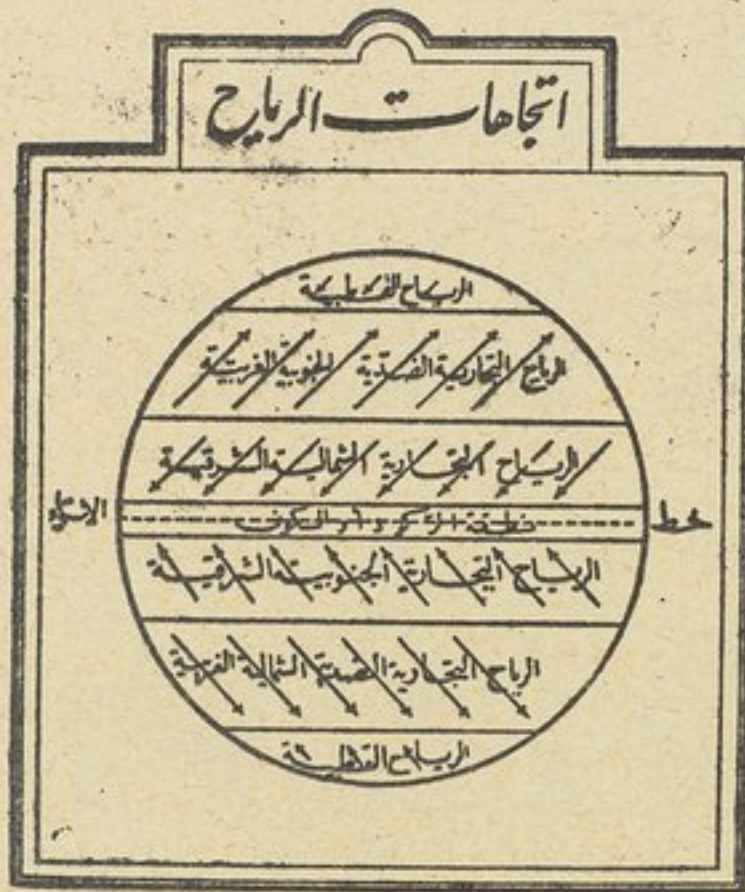 اتجاهات الرياح
الرياح القطبية
الرياح التجارية الضدية الجنوبية الغربية
الرياح التجارية الشمالية الشرقية
خط الاستواء
منطقة الركود أو السكون
الرياح التجارية الجنوبية الشرقية
الرياح التجارية الضدية الشمالية الغربية
الرياح القطبية